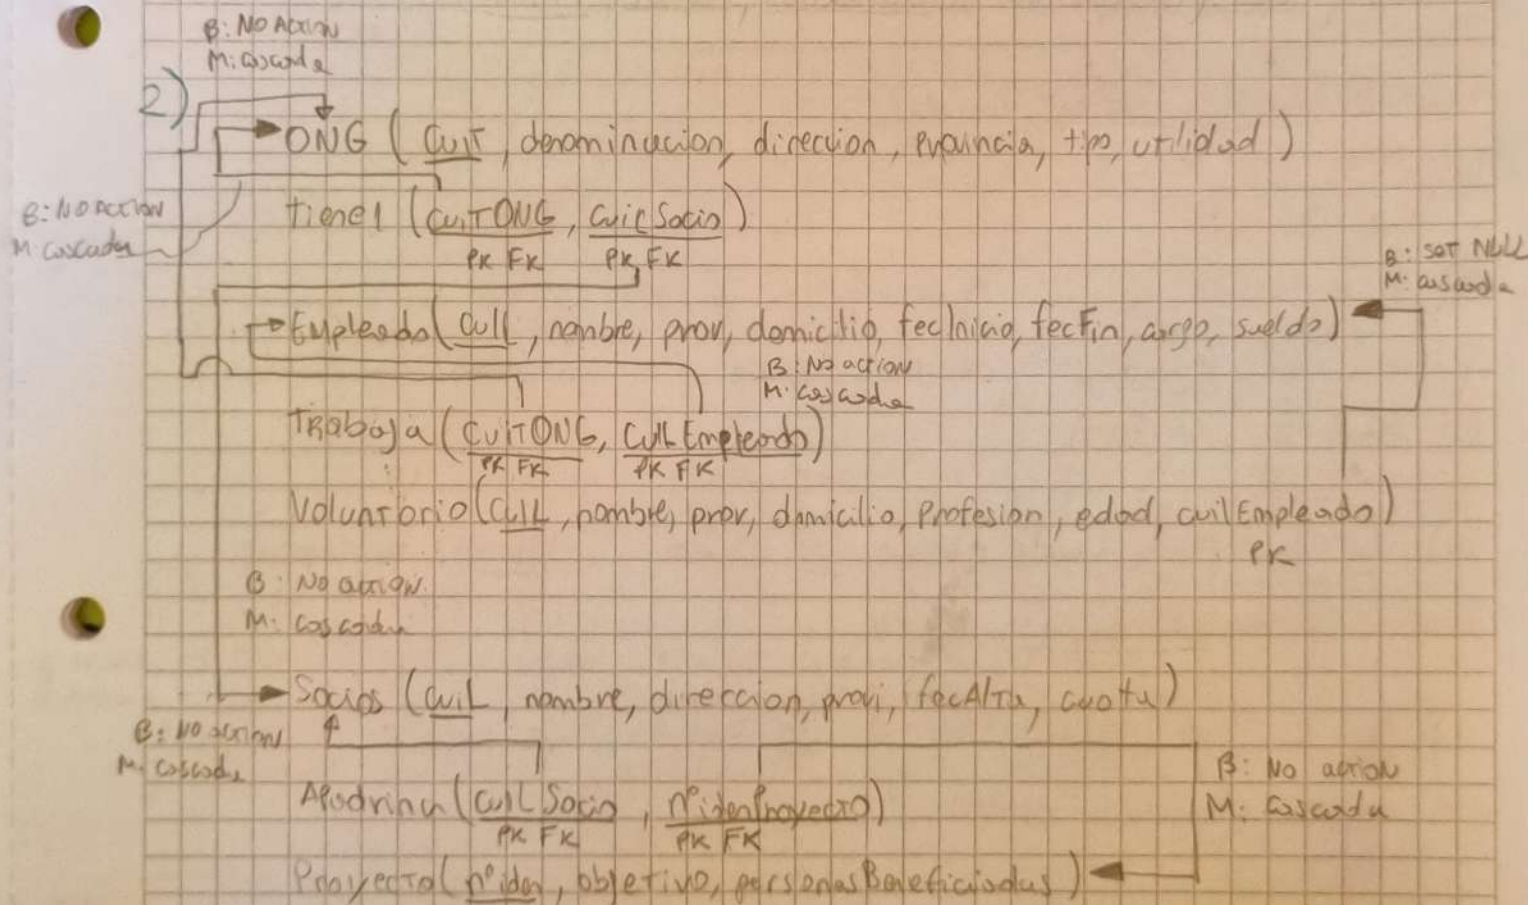 B: No Action
M: cascada
2)
ONG (CUIT, denominacion, direccion, provincia, tipo, utilidad)
B: NO ACTION
M cascada
tiene1 (CUITONG, cuilSocio)
PK FK PK FK
B: set NULL
M: cascada
Empleado(CUIL, nombre, prov, domicilio, fecInicio, fecFin, cargo, sueldo)
B: No action
M: cascada
Trabaja (CUITONG, CUILEmpleado)
PK FK PK FK
Voluntario(CUIL, nombre, prov, domicilio, Profesion, edad, cuilEmpleado)
PK
B: No action.
M: cascada
Socios (CUIL, nombre, direccion, provi, fecAlta, cuota)
B: NO action
M: cascada
B: No action
M: cascada
Apadrina (CUILSocio, nºidenProyecto)
PK FK PK FK
Proyecto (nºiden, objetivo, personasBeneficiadas)